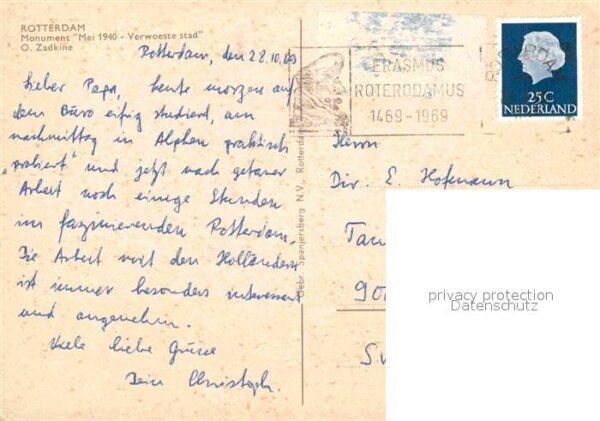 ROTTERDAM
Monument "Mei 1940 - Verwoeste stad"
O. Zadkine
Rotterdam, den 28.10.69
Lieber Papa, heute morgen auf
dem Büro eifrig studiert, am
nachmittag in Alphen praktisch
"probiert" und jetzt nach getaner
Arbeit noch einige Stunden
im faszinierenden Rotterdam.
Die Arbeit mit den Holländern
ist immer besonders interessant
und angenehm.
Viele liebe Grüsse
Dein Christoph.
Gebr. Spanjersberg N.V., Rotterdam
ERASMUS
ROTERODAMUS
1469-1969
ROTTERDAM
25C
NEDERLAND
Herrn
Dir. E. Hofmann
privacy protection
Datenschutz